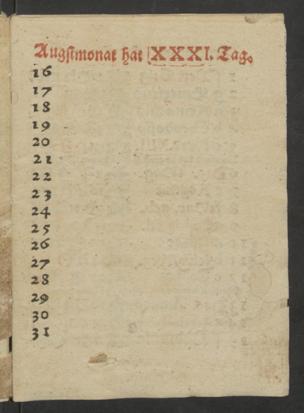 Augstmonat hat XXXI. Tag.
16
17
18
19
20
21
22
23
24
25
26
27
28
29
30
31